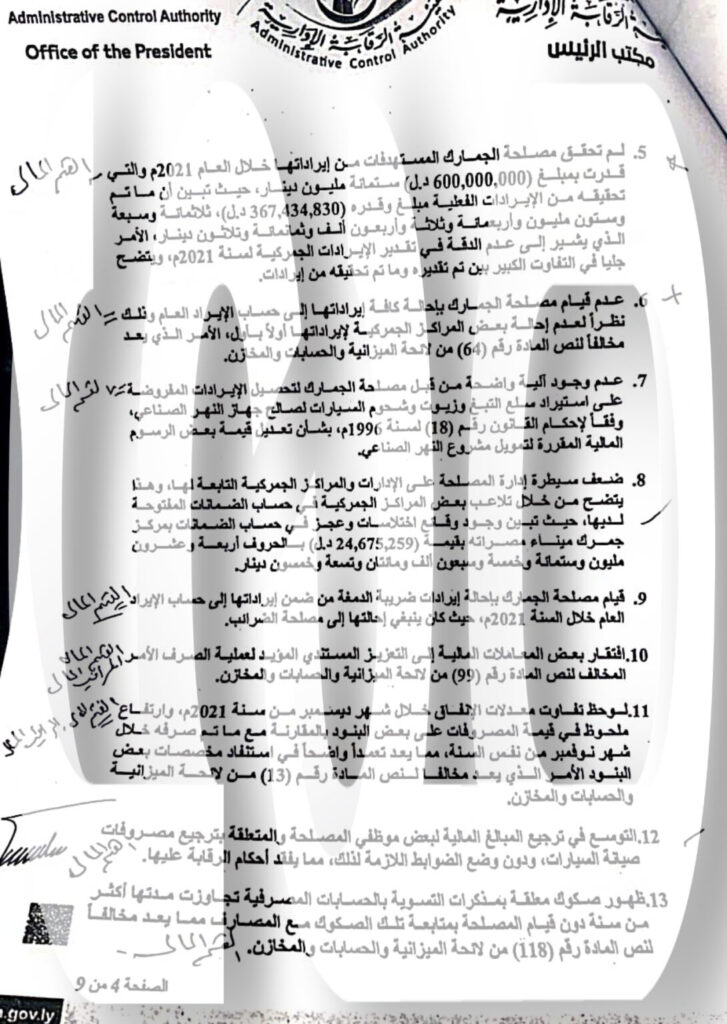 Administrative Control Authority
Office of the President
Administrative Control Authority
مكتب الرئيس
5. لم تحقق مصلحة الجمارك المستهدفات من إيراداتها خلال العام 2021م والتي
قدرت بمبلغ (600,000,000 د.ل) ستمائة مليون دينار، حيث تبين أن ما تم
تحقيقه من الإيرادات الفعلية مبلغ وقدره (367,434,830 د.ل)، ثلاثمائة وسبعة
وستون مليون وأربعمائة وثلاثة وأربعون ألف وثمانمائة وثلاثون دينار، الأمر
الذي يشير إلى عدم الدقة في تقدير الإيرادات الجمركية لسنة 2021م، ويتضح
جليا في التفاوت الكبير بين تم تقديره وما تم تحقيقه من إيرادات.
6. عدم قيام مصلحة الجمارك بإحالة كافة إيراداتها إلى حساب الإيراد العام وذلك
نظراً لعدم إحالة بعض المراكز الجمركية لإيراداتها أولاً بأول، الأمر الذي يعد
مخالفاً لنص المادة رقم (64) من لائحة الميزانية والحسابات والمخازن.
7. عدم وجود آلية واضحة من قبل مصلحة الجمارك لتحصيل الإيرادات المفروضة
على استيراد سلع التبغ وزيوت وشحوم السيارات لصالح جهاز النهر الصناعي،
وفقاً لإحكام القانون رقم (18) لسنة 1996م، بشأن تعديل قيمة بعض الرسوم
المالية المقررة لتمويل مشروع النهر الصناعي.
8. ضعف سيطرة إدارة المصلحة على الإدارات والمراكز الجمركية التابعة لها، وهذا
يتضح من خلال تلاعب بعض المراكز الجمركية في حساب الضمانات المفتوحة
لديها، حيث تبين وجود وقائع اختلاسات وعجز في حساب الضمانات بمركز
جمرك ميناء مصراته بقيمة (24,675,259 د.ل) بالحروف أربعة وعشرون
مليون وستمائة وخمسة وسبعون ألف ومائتان وتسعة وخمسون دينار.
9. قيام مصلحة الجمارك بإحالة إيرادات ضريبة الدمغة من ضمن إيراداتها إلى حساب الإيراد
العام خلال السنة 2021م، حيث كان ينبغي إحالتها إلى مصلحة الضرائب.
10. افتقار بعض المعاملات المالية إلى التعزيز المستندي المؤيد لعملية الصرف الأمر
المخالف لنص المادة رقم (99) من لائحة الميزانية والحسابات والمخازن.
11. لوحظ تفاوت معدلات الإنفاق خلال شهر ديسمبر من سنة 2021م، وارتفاع
ملحوظ في قيمة المصروفات على بعض البنود بالمقارنة مع ما تم صرفه خلال
شهر نوفمبر من نفس السنة، مما يعد تعمداً واضحاً في استنفاد مخصصات بعض
البنود الأمر الذي يعد مخالفا لنص المادة رقم (13) من لائحة الميزانية
والحسابات والمخازن.
12. التوسع في ترجيع المبالغ المالية لبعض موظفي المصلحة والمتعلقة بترجيع مصروفات
صيانة السيارات، ودون وضع الضوابط اللازمة لذلك، مما يفقد أحكام الرقابة عليها.
13. ظهور صكوك معلقة بمذكرات التسوية بالحسابات المصرفية تجاوزت مدتها أكثر
من سنة دون قيام المصلحة بمتابعة تلك الصكوك مع المصارف مما يعد مخالفاً
لنص المادة رقم (118) من لائحة الميزانية والحسابات والمخازن.
الصفحة 4 من 9
.gov.ly